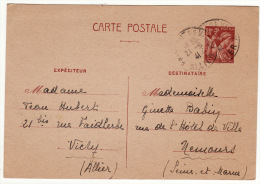 CARTE POSTALE
EXPÉDITEUR
Madame
Jean Hubert
21 bis rue Faidherbe
Vichy
(Allier)
DESTINATAIRE
Mademoiselle
Ginette
rue de l'Hôtel de Ville
Nemours
(Seine et Marne)